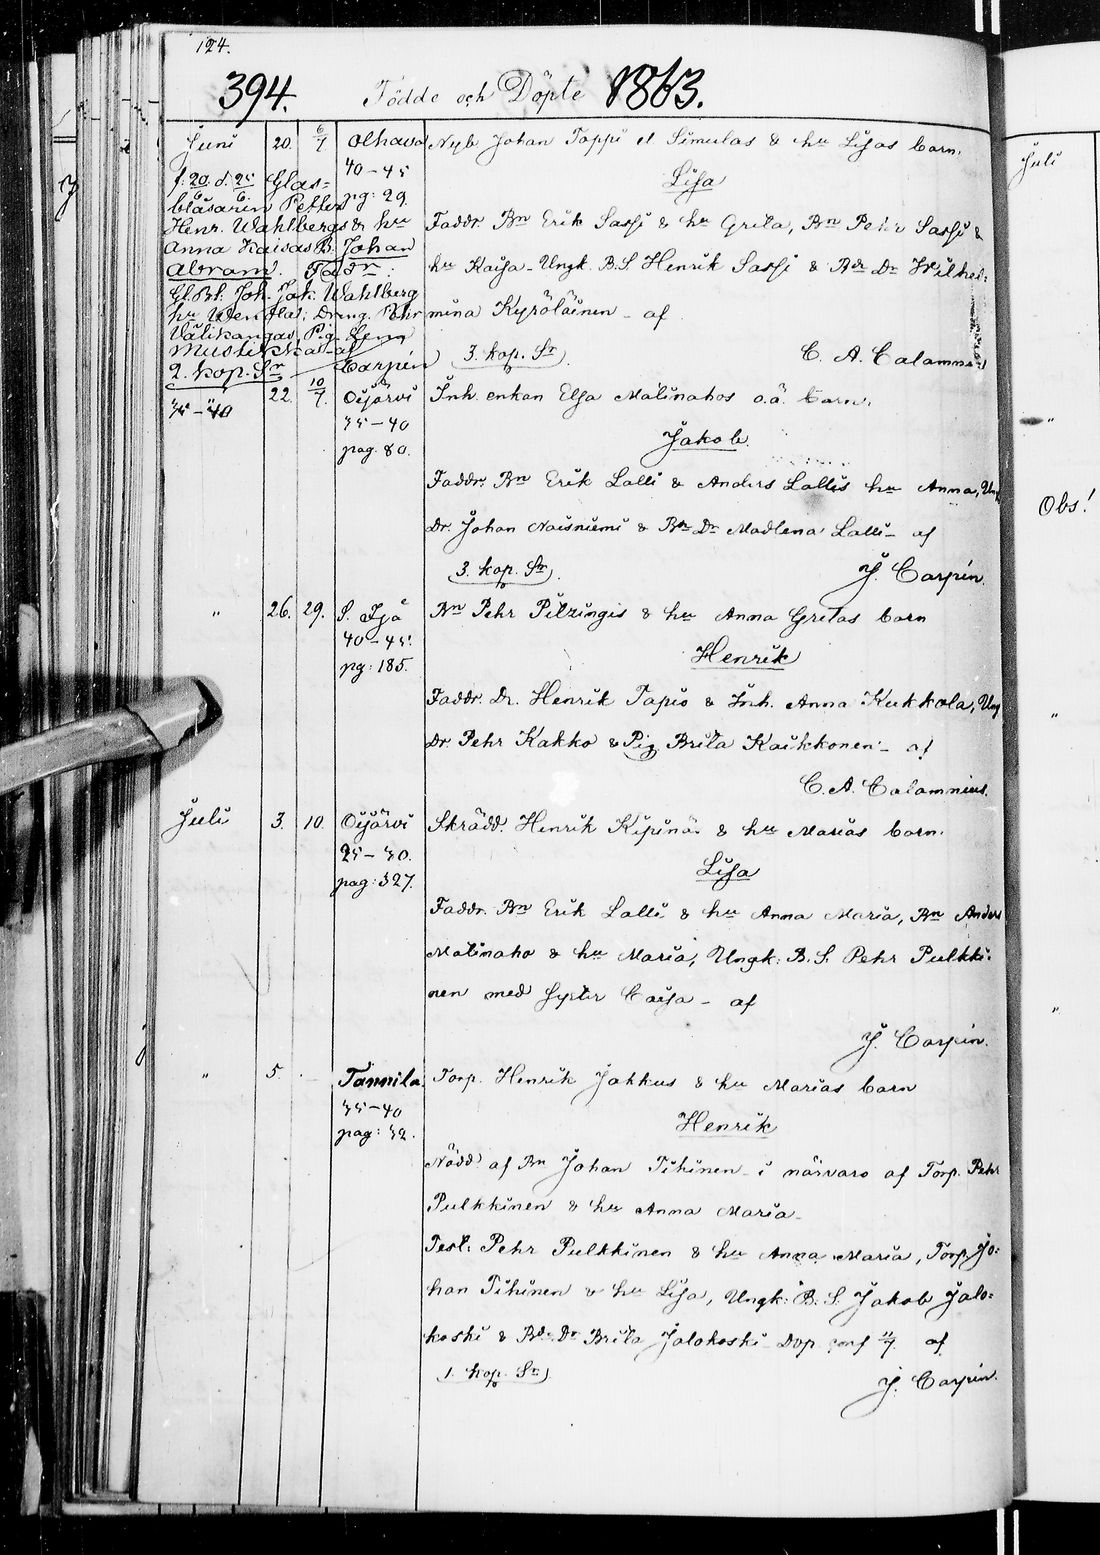 124.
394. Födde och Döpte 1863.
Juni 20. 6/7 Olhava Nyb. Johan Tappi et Simulas & hu Lisas barn.
40-45
pg: 29.
Lisa
f. 20/6 d. 25/6 Glas-
blåsaren Petter
Henr. Wahlbergs & hu
Anna Kaisas B. Johan
Abram. Faddr:
Gl.Bl. Joh. Jak. Wahlberg
hu Wendla; Dreng. Pehr
Välikangas, Pig. Lena
Mustikka - af
2. kop. Sr Carpén
35-40
Faddr. Bn Erik Sassi & hu Greta, Bn Petter Sassi &
hu Kaisa - Ungk. B.S Henrik Sassi & Bd. Dr Wilhel:
mina Kyröläinen - af
3. kop. Sr C. A. Calamnius
22. 10/7. Oijärvi Inh. enkan Elsa Malinahos o.ä. barn.
35-40
pag. 80.
Jakob.
Faddr. Bn Erik Lalli & Anders Lallis hu Anna, Ung
Dr. Johan Naisniemi & Bd. Dr Madlena Lalli - af
3. kop. Sr J. Carpén.
" 26. 29. S. Ijå Bn Pehr Pilzingis & hu Anna Gretas barn
40-45.
pg: 185.
Henrik
Faddr. Dr. Henrik Tapio & Inh. Anna Kukkola, Ung
Dr Pehr Kakko & Pig Brita Kaikkonen - af
C. A. Calamnius.
Juli 3. 10. Oijärvi Skrädd. Henrik Kipinäs & hu Marias barn.
25-30.
pag: 327.
Lisa
Faddr. Bn Erik Lalli & hu Anna Maria, Bn Anders
Malinaho & hu Maria, Ungk: B. S. Pehr Pulkki:
nen med syster Caisa - af
J. Carpén.
" 5. Tannila. Torp. Henrik Jakkus & hu Marias barn
35-40
pag: 32.
Henrik
Nödd. af Bn Johan Tihinen i närvaro af Torp. Pehr
Pulkkinen & hu Anna Maria -
Test: Pehr Pulkkinen & hu Anna Maria, Torp. Jo:
han Tihinen & hu Lisa, Ungk: B. S. Jakob Jalo:
koski & Bd: Dr Brita Jalokoski Dop. conf 11/7. af
1. kop. Sr J. Carpén.
Juli
"
Obs!
"
"